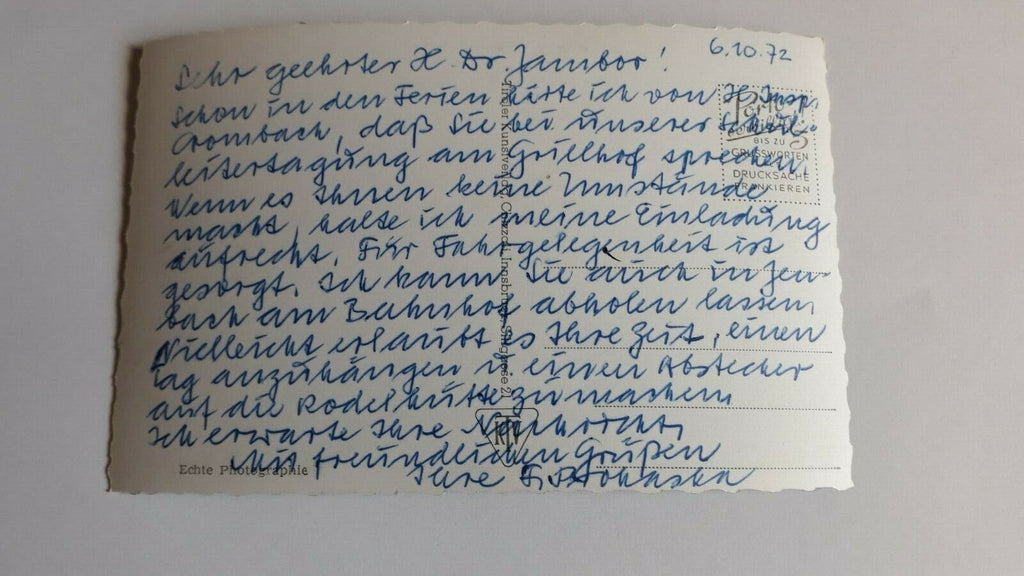 6.10.72
Sehr geehrter H. Dr Jambor!
Schon in den Ferien hörte ich von H. Insp.
Crombach, daß Sie bei unserer Schul-
leitertagung am Grillhof sprechen.
Wenn es Ihnen keine Umstände
macht, halte ich meine Einladung
aufrecht. Für Fahrgelegenheit ist
gesorgt. Ich kann Sie auch in Jen
bach am Bahnhof abholen lassen.
Vielleicht erlaubt es Ihre Zeit, einen
Tag anzuhängen u einen Abstecher
auf die Rodelhütte zu machen.
Ich erwarte Ihre Nachricht.
Mit freundlichen Grüßen
Ihre
BIS ZU
GRUSSWORTEN
DRUCKSACHE
FRANKIEREN
Tiroler Kunstverlag, Innsbruck
Echte Photographie